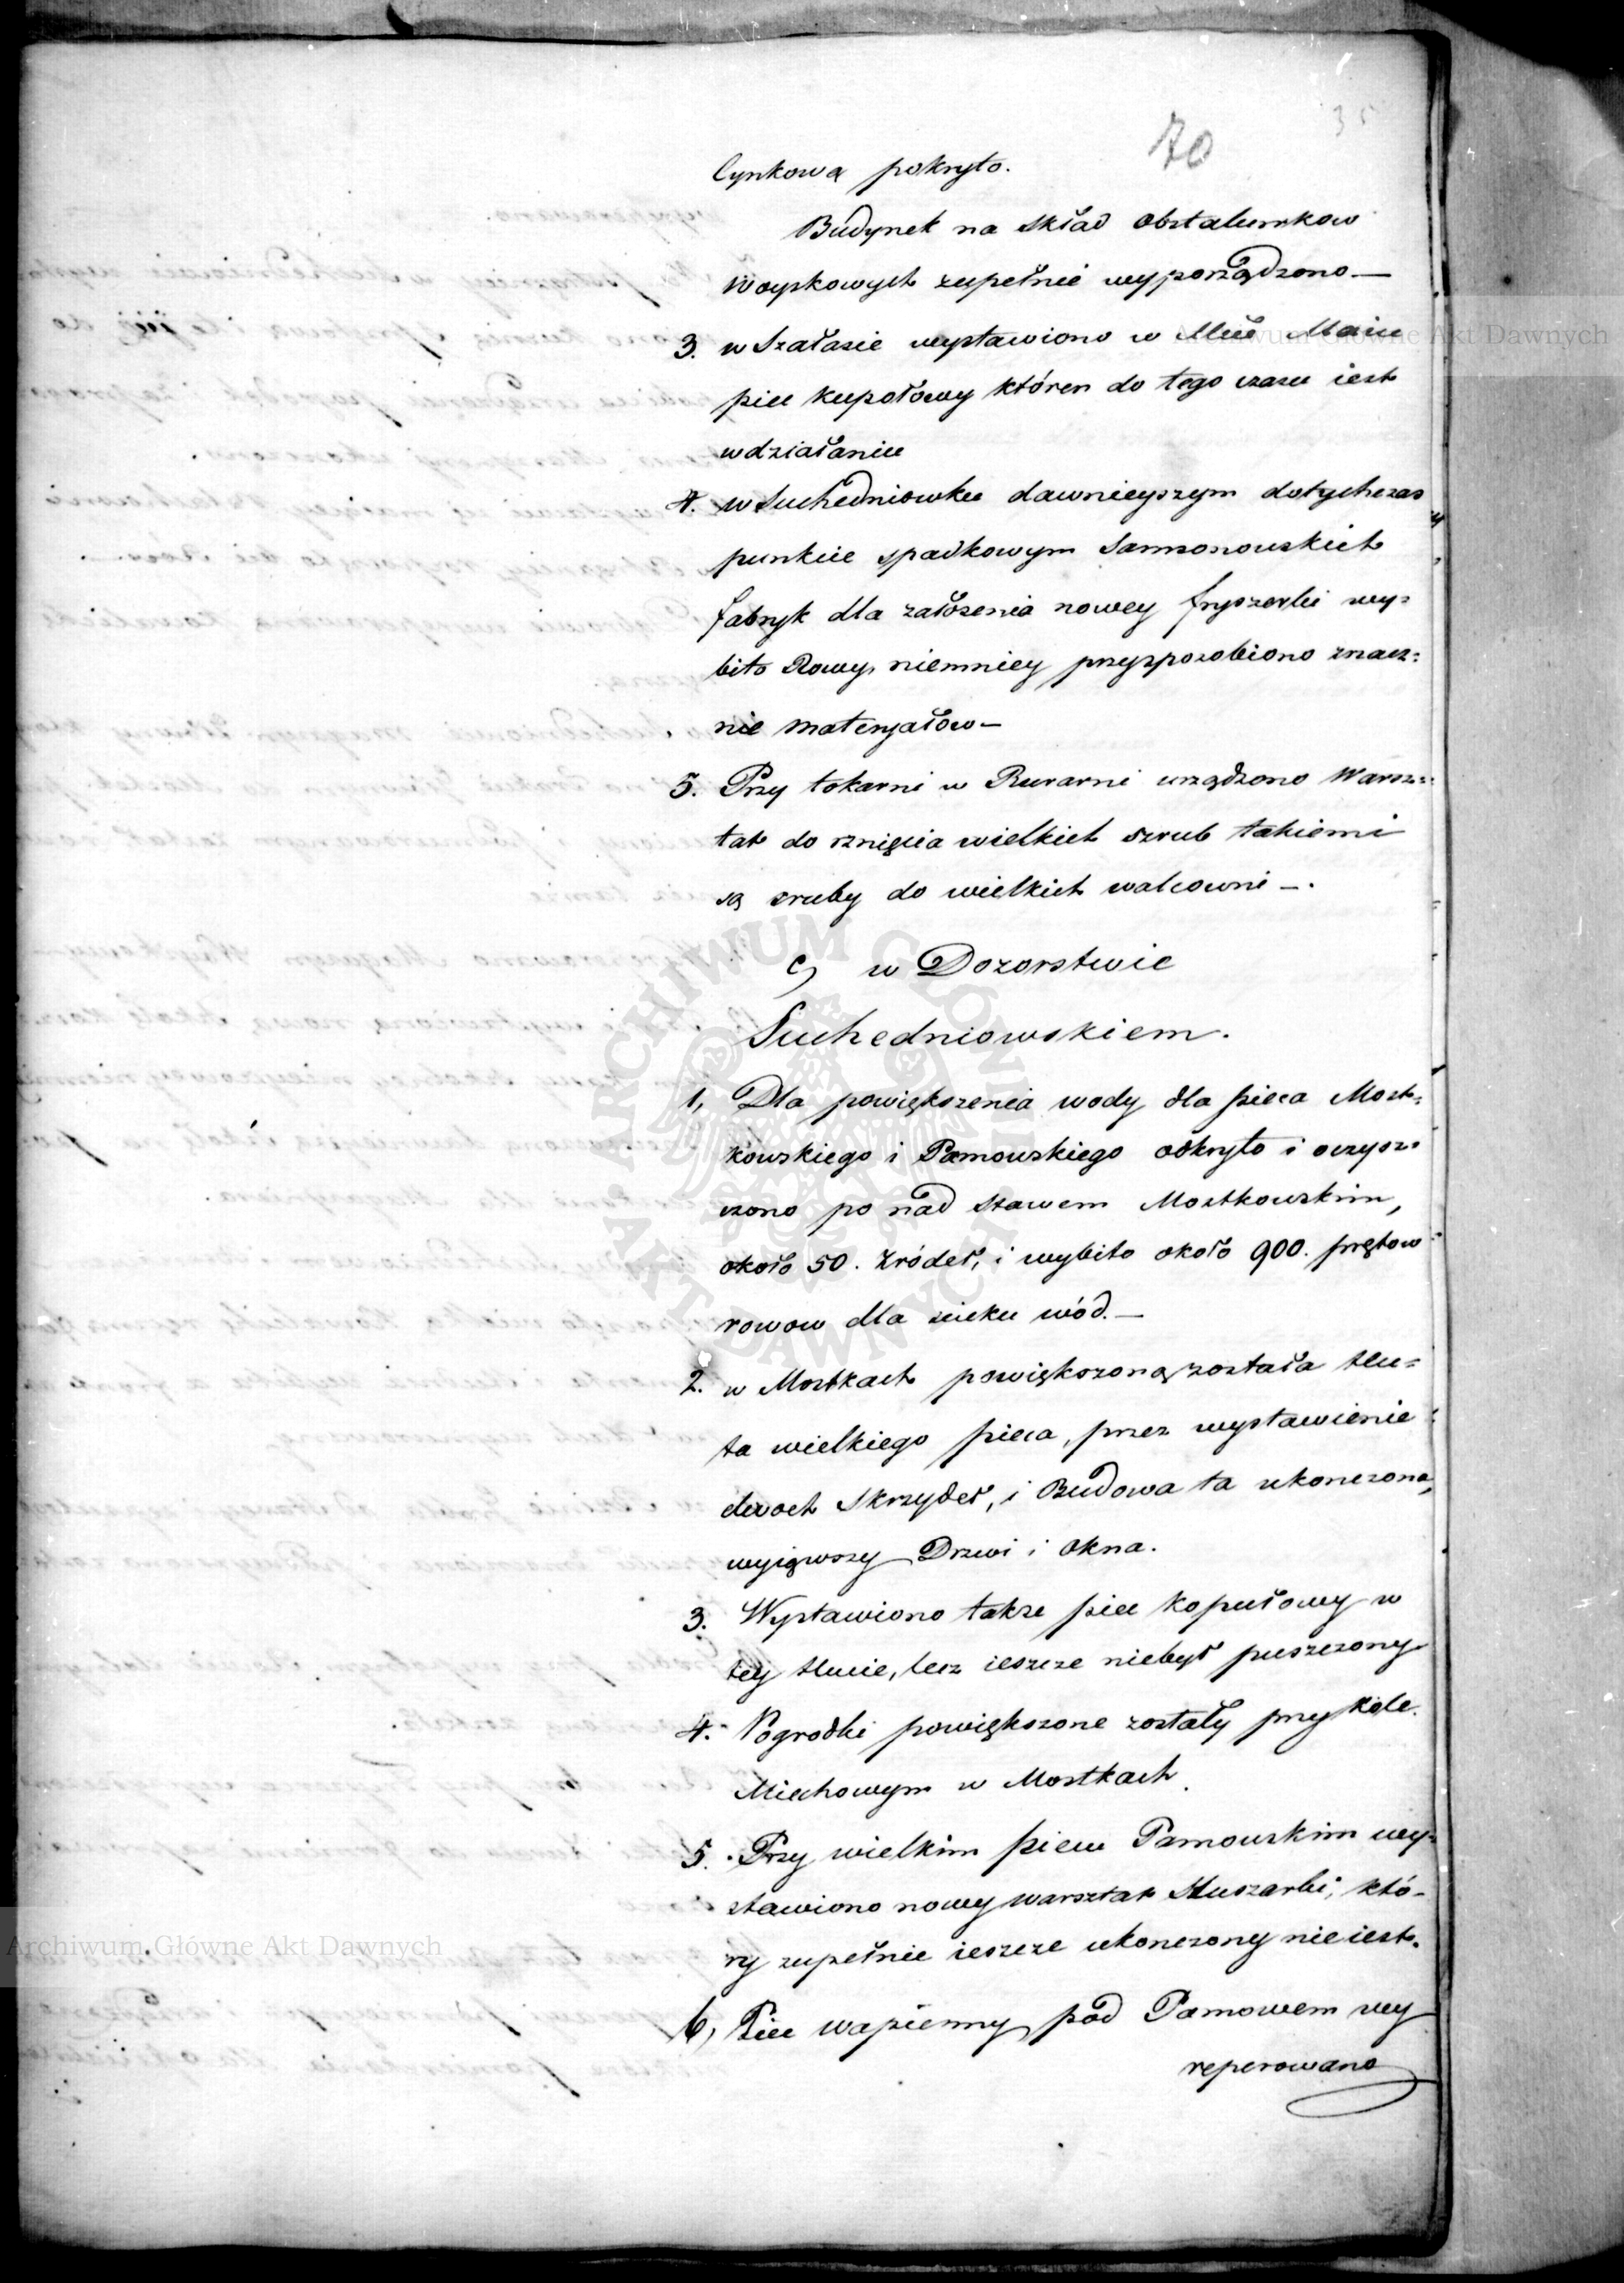 70
35
Cynkową pokryto.
Budynek na skład obstalunkow
Woyskowych zupełnie wyporządzono —
3. w Szałasie wystawiono w Mcu Maiu
piec kupołowy któren do tego czasu iest
w działaniu
4. w Suchedniowku dawnieyszym dotychczas
punkcie spadkowym Samsonowskich
fabryk dla założenia nowey fryszerki wy=
bito Rowy, niemniey przysposobiono znacz=
nie materyałów —
5. Przy tokarni w Rurarni urządzono Warsz=
tat do rznięcia wielkich szrub takiemi
są sruby do wielkich walcowni —.
c, w Dozorstwie
Suchedniowskiem.
1, Dla powiększenia wody dla pieca Most=
kowskiego i Parszowskiego odkryto i oczysz=
czono po nad stawem Mostkowskim,
około 50. źródeł, i wybito około 900. prętow
rowow dla scieku wód. —
2. w Mostkach powiększoną została Hu=
ta wielkiego pieca, przez wystawienie
dwoch Skrzydeł, i Budowa ta ukonczona,
wyiąwszy Drzwi i okna.
3. Wystawiono takze piec kopułowy w
tey Hucie, lecz ieszcze niebył puszczony
4. Pogrodki powiększone zostały przy kole
Miechowym w Mostkach.
5. Przy wielkim piecu Parszowskim wy=
stawiono nowy warsztat Sluszarki, któ=
ry zupełnie ieszcze ukonczony nie iest.
6, Piec wapienny pod Parszowem wy
reperowano
Archiwum Główne Akt Dawnych
Archiwum Główne Akt Dawnych
ARCHIWUM GŁÓWNE AKT DAWNYCH